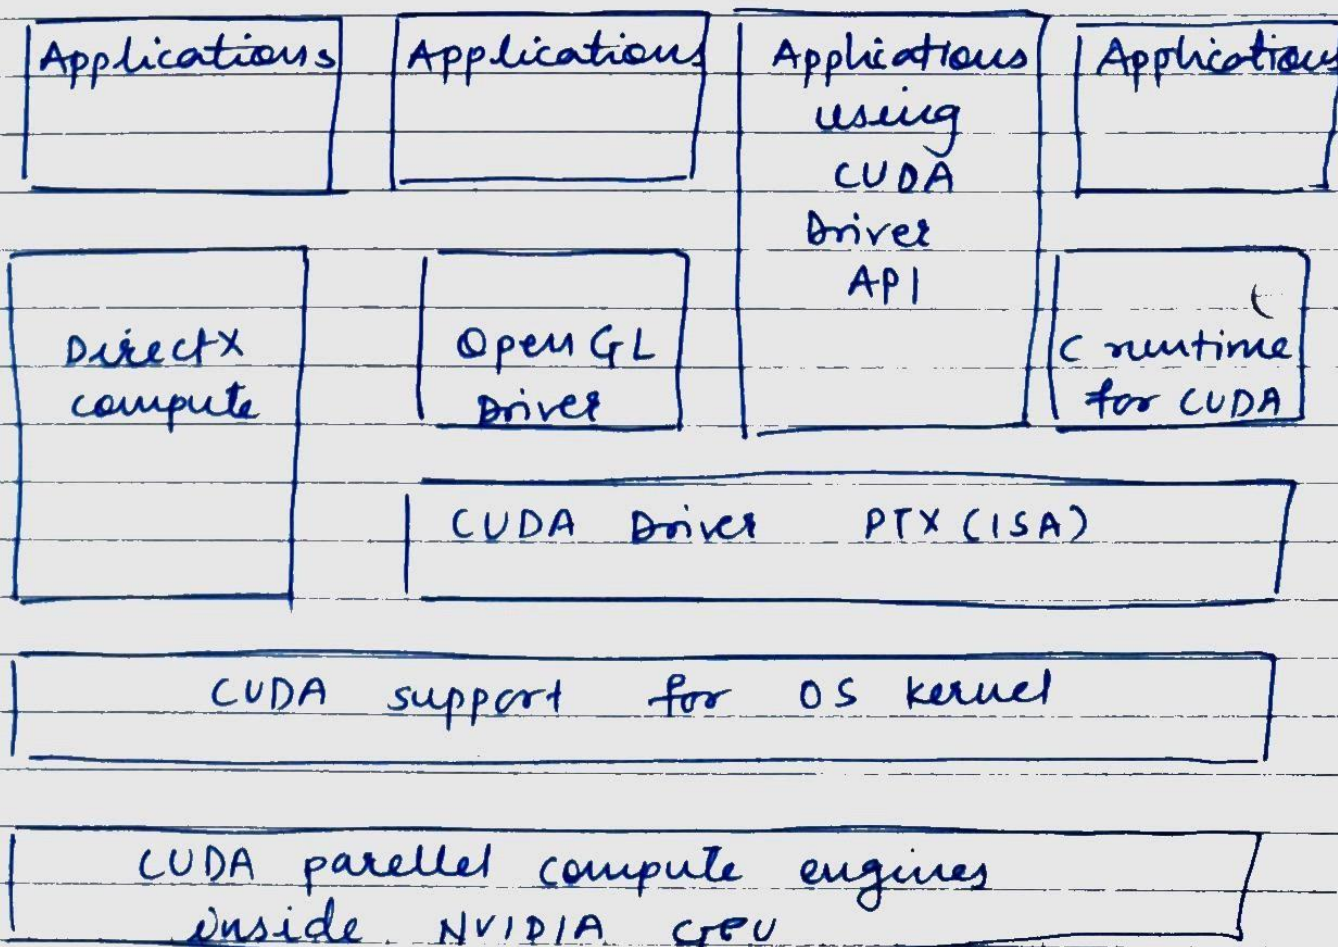 Applications
Applications
Applications
using
CUDA
Driver
API
Applications
DirectX
compute
OpenGL
Driver
C runtime
for CUDA
CUDA Driver PTX (ISA)
CUDA support for OS kernel
CUDA parellel compute engines
inside NVIDIA GPU